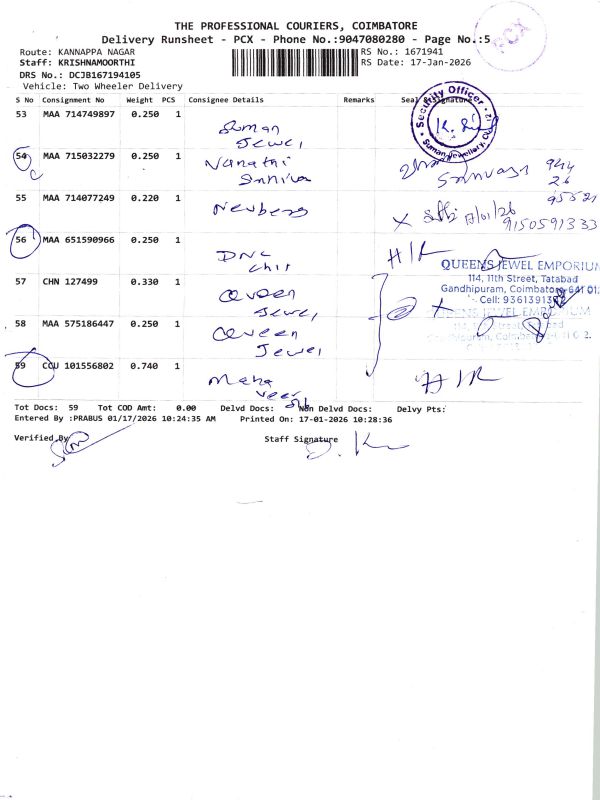 PCX
THE PROFESSIONAL COURIERS, COIMBATORE
Delivery Runsheet - PCX - Phone No.:9047080280 - Page No.:5
Route: KANNAPPA NAGAR RS No.: 1671941
Staff: KRISHNAMOORTHI RS Date: 17-Jan-2026
DRS No.: DCJB167194105
Vehicle: Two Wheeler Delivery
S No Consignment No Weight PCS Consignee Details Remarks Seal & Signature
53 MAA 714749897 0.250 1 Suman
Jewel
Security Officer
Suman Jewellery
54 MAA 715032279 0.250 1
Srinivasa 944
26
95521
55 MAA 714077249 0.220 1 Neuberg
17/01/26
9150591333
56 MAA 651590966 0.250 1 DNC
chit
QUEENS JEWEL EMPORIUM
114, 11th Street, Tatabad
Gandhipuram, Coimbatore 641 012
Cell: 9361391
57 CHN 127499 0.330 1 Queen
Jewel
QUEENS JEWEL EMPORIUM
58 MAA 575186447 0.250 1 Queen
Jewel
59 CCU 101556802 0.740 1 Maha
Veer
Tot Docs: 59 Tot COD Amt: 0.00 Delvd Docs: Non Delvd Docs: Delvy Pts:
Entered By :PRABUS 01/17/2026 10:24:35 AM Printed On: 17-01-2026 10:28:36
Verified By Staff Signature